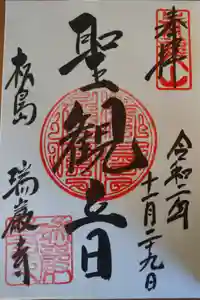 奉拝
令和二年
十一月二十九日
聖観音
松島
瑞巌寺